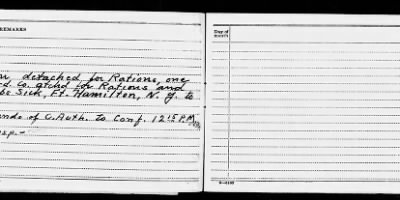 REMARKS
detached for Rations, one
Co. atchd for Rations and
Sick, Ft. Hamilton, N. Y. to
of C. Auth. to Conf. 12:15 PM
Day of
month